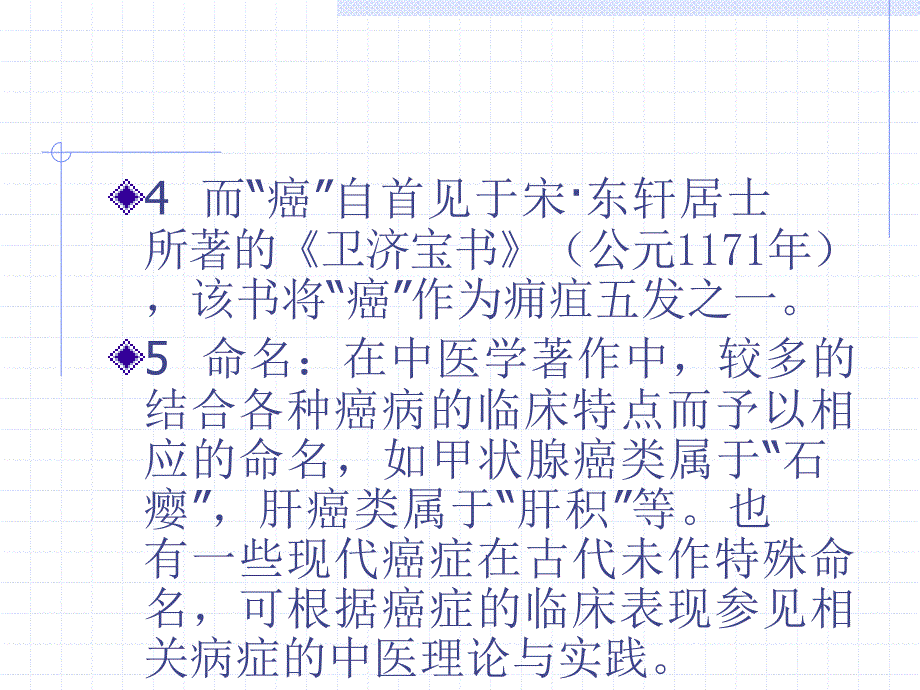 4 而“癌”自首见于宋·东轩居士
所著的《卫济宝书》（公元1171年）
，该书将“癌”作为痈疽五发之一。
5 命名：在中医学著作中，较多的
结合各种癌病的临床特点而予以相
应的命名，如甲状腺癌类属于“石
瘿”，肝癌类属于“肝积”等。也
有一些现代癌症在古代未作特殊命
名，可根据癌症的临床表现参见相
关病症的中医理论与实践。